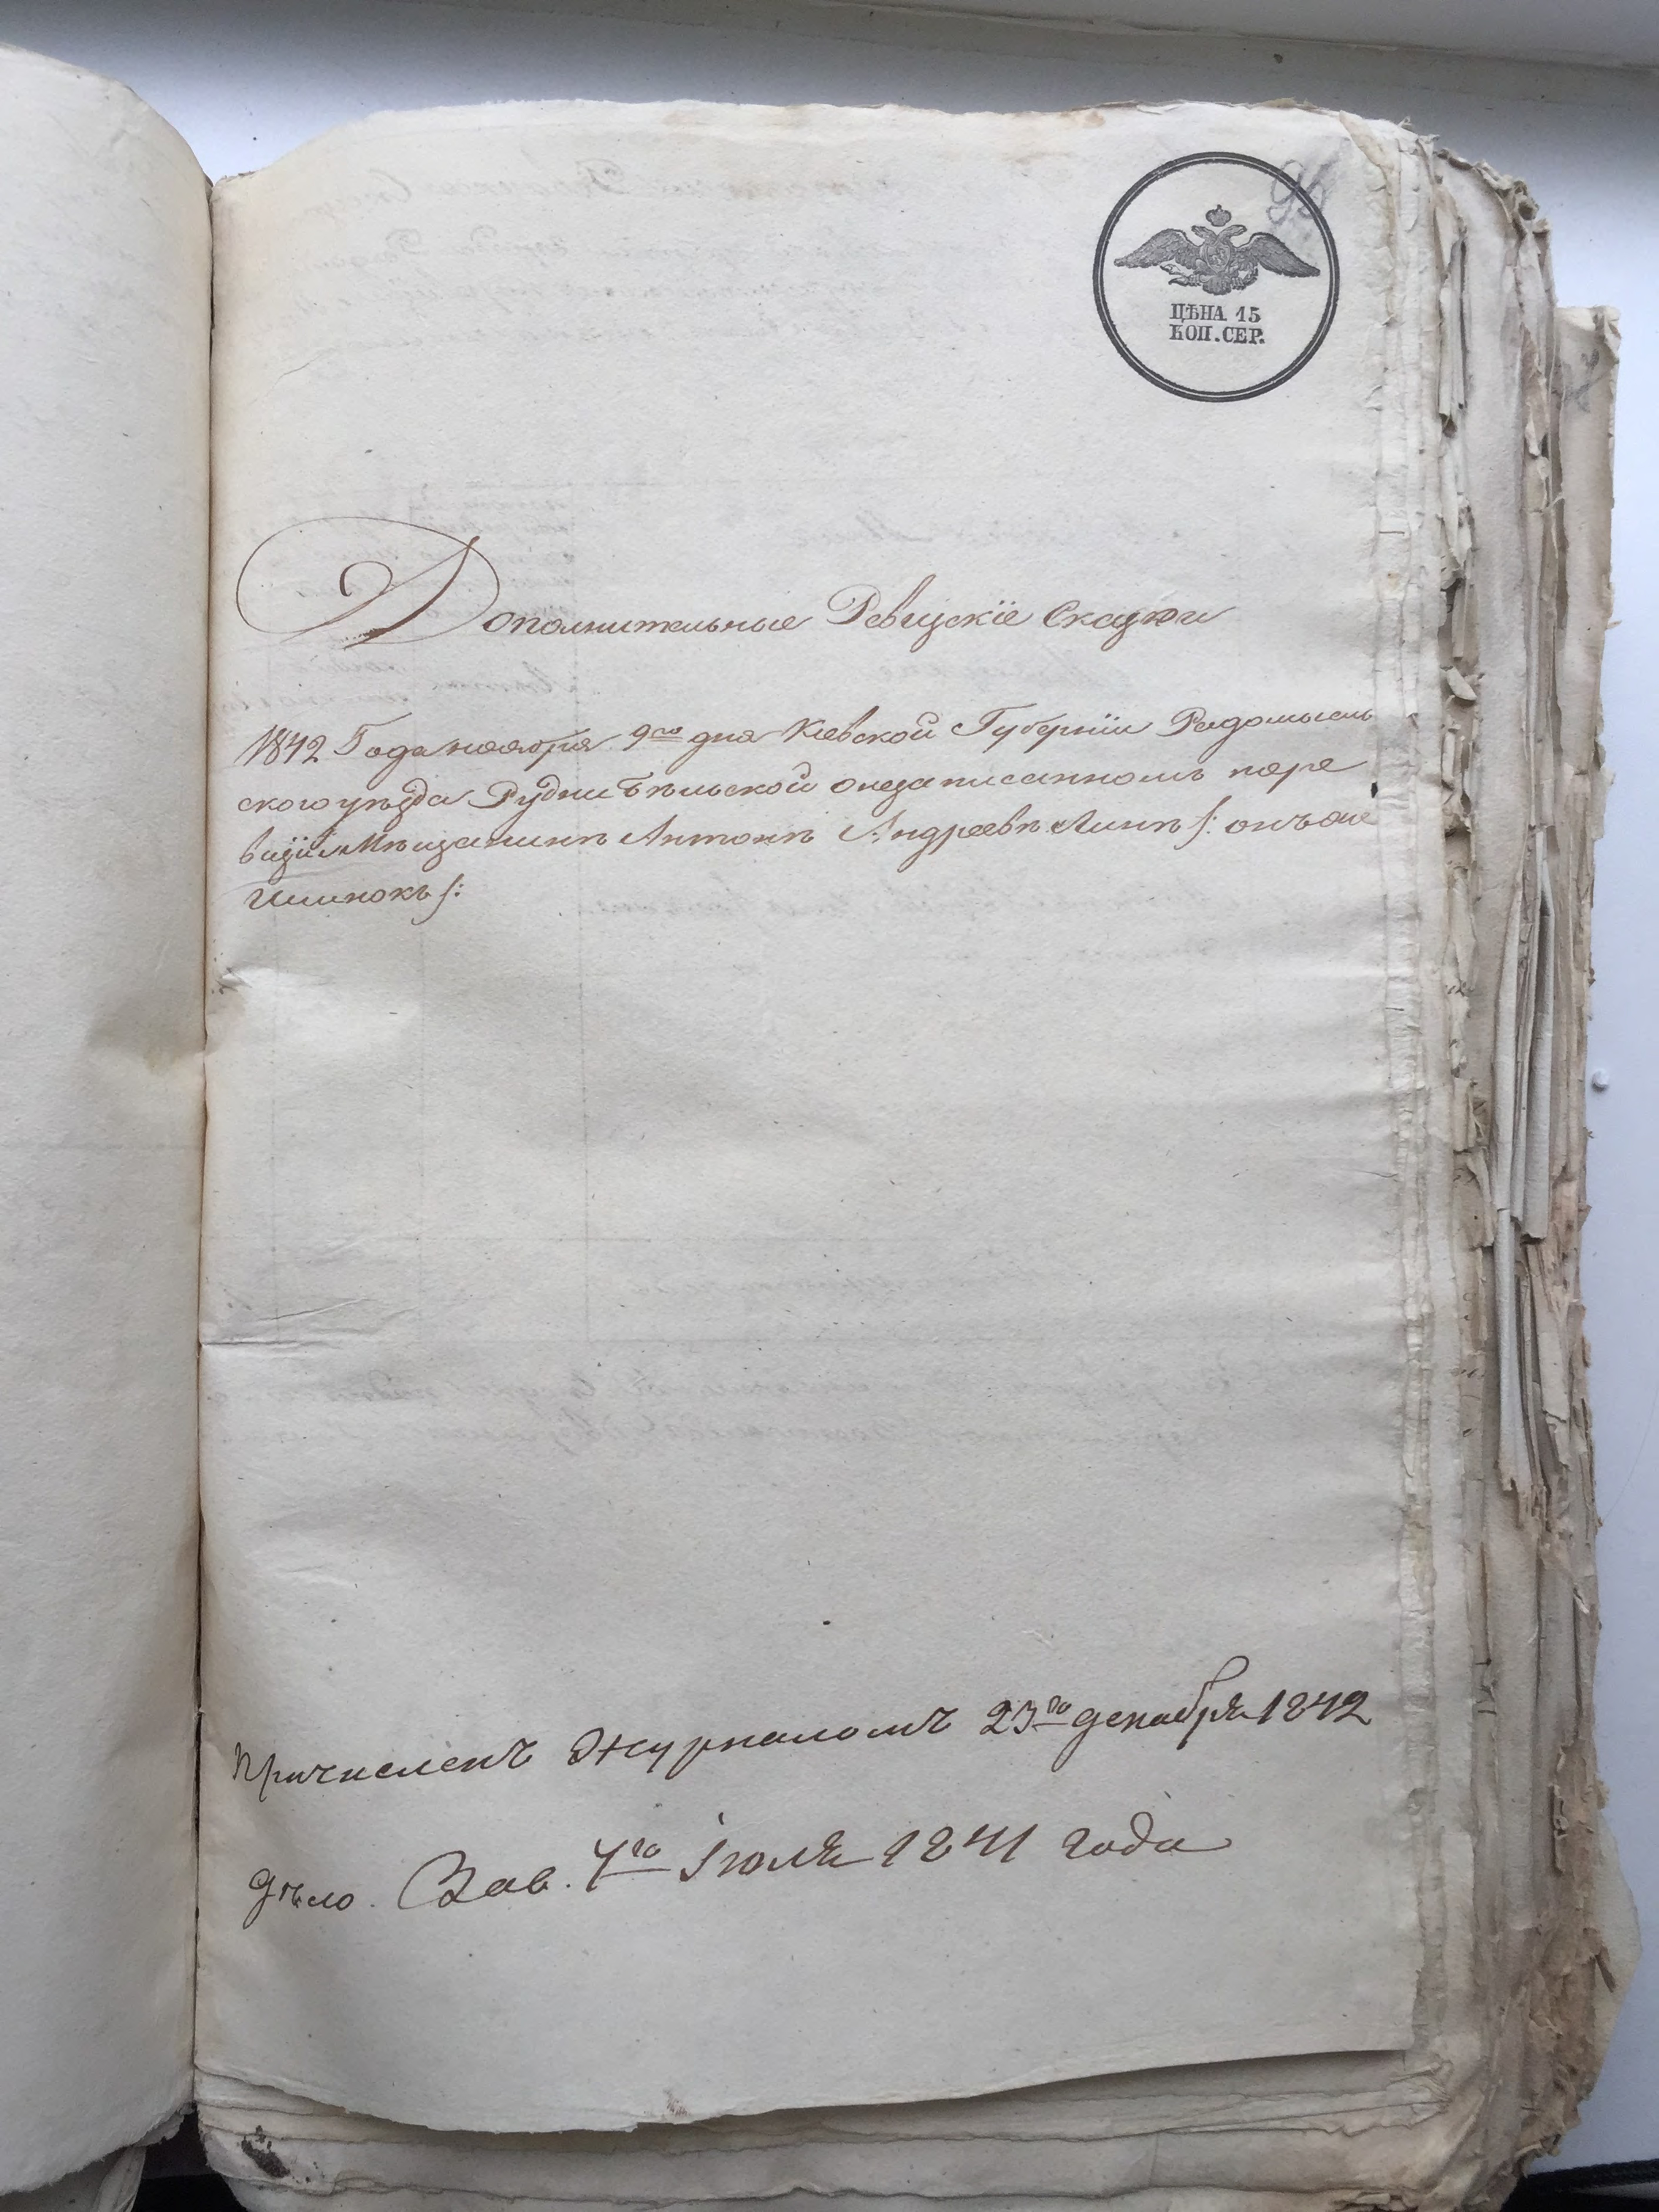 ЦѢНА 15
КОП. СЕР.
Дополнительные Ревизскіе Сказки
1842 Года ноября 9го дня Кіевской Губерніи Радомысль
ского уѣзда Рудни Бѣльской о незаписанномъ по ре
визіи Мѣщанинѣ Антонѣ Андреевѣ Линѣ /: онъ же
/:
Причисленъ Журналомъ 23го декабря 1842
дѣло Зав. 4го Іюля 1841 года